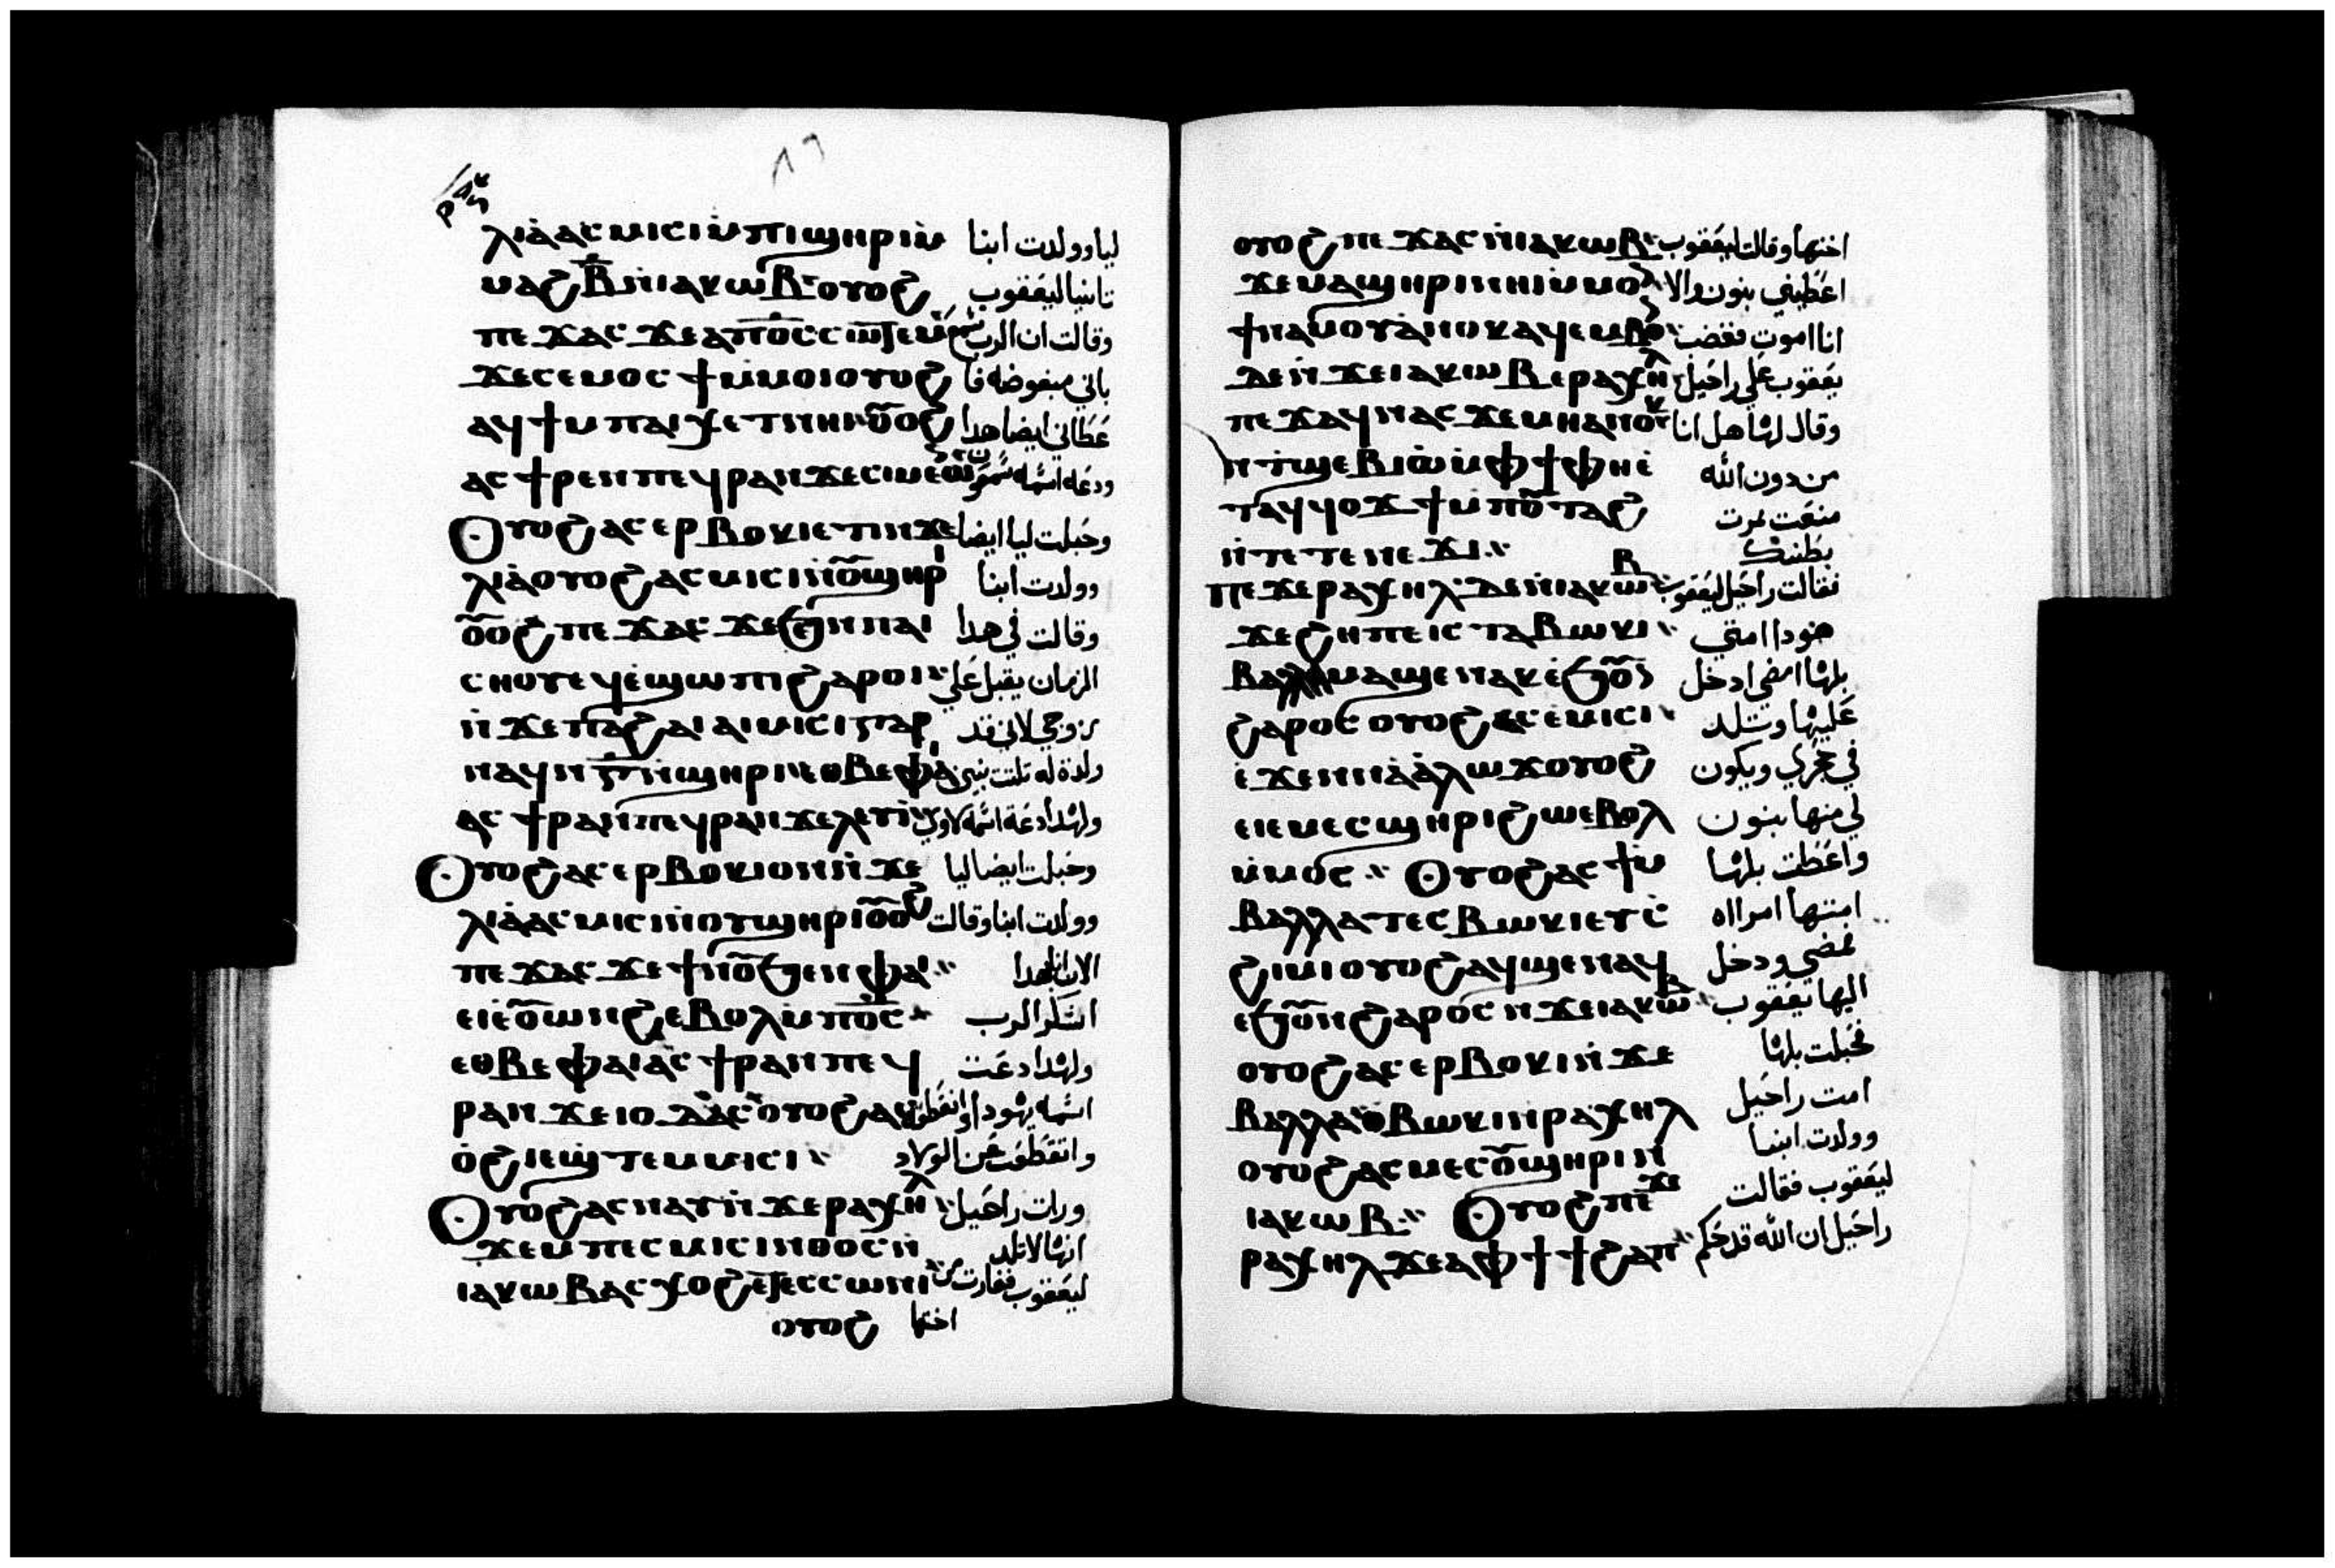 ⲗⲓⲁ̀ ⲁⲥⲙⲓⲥⲓ ⲙ̀ⲡⲓϣⲏⲣⲓ ⲙ̀ ليا وولدت ابنا
ⲙⲁϩⲃ̅ ⲛ̀ⲓⲁⲕⲱⲃ ⲟⲩⲟϩ تانيا ليعقوب
ⲡⲉϫⲁⲥ ϫⲉ ⲁⲡⲟ̅ⲥ̅ ⲥⲱⲧⲉⲙ وقالت ان الرب سمع
ϫⲉ ⲥⲉⲙⲟⲥϯ ⲙ̀ⲙⲟⲓ ⲟⲩⲟϩ باني مبغوضه فا
ⲁϥϯ ⲙⲡⲁⲓⲭⲉⲧ ⲛⲏⲓ ⲟ̅ⲟϩ عطاني ايضا هدا
ⲁⲥϯⲣⲉⲛ ⲡⲉϥⲣⲁⲛ ϫⲉ ⲥⲓⲙⲉⲱⲛ ودعه اسمه شمعون
Ⲟⲩⲟϩ ⲁⲥⲉⲣⲃⲟⲕⲓ ⲉⲧⲓ ⲛϫⲉ وحبلت ليا ايضا
ⲗⲓⲁ̀ ⲟⲩⲟϩ ⲁⲥⲙⲓⲥⲓ ⲛⲟ̅ϣⲏⲣⲓ وولدت ابنا
ⲟ̅ⲟϩ ⲡⲉϫⲁⲥ ϫⲉ ϧⲉⲛ ⲡⲁⲓ وقالت في هدا
ⲥⲏⲟⲩ ⲉϥⲉ̀ϣⲱⲡⲓ ϩⲁⲣⲟⲓ الزمان يقبل علي
ⲛ̀ϫⲉ ⲡⲁϩⲁⲓ ⲁⲓⲙⲓⲥⲓ ⲅⲁⲣ زوجي لاني قد
ⲛⲁϥ ⲛ̅ⲅ̅ ⲛ̀ϣⲏⲣⲓ ⲉⲑⲃⲉⲫⲁⲓ ولدة له تلتت بنين
ⲁⲥϯⲣⲁⲛ ⲡⲉϥⲣⲁⲛ ϫⲉ ⲗⲉⲩⲓ̀ ولهدا دعة اسمه لاوي
Ⲟⲩⲟϩ ⲁⲥⲉⲣⲃⲟⲕⲓ ⲟⲛ ⲛ̀ϫⲉ وحبلت ايضا ليا
ⲗⲓⲁ̀ ⲁⲥⲙⲓⲥⲓ ⲛ̀ⲟⲩϣⲏⲣⲓ ⲟ̅ⲟϩ وولدت ابنا وقالت
ⲡⲉϫⲁⲥ ϫⲉ ϯⲛⲟ̅ ϧⲉⲛ ⲫⲁⲓ الان بهدا
ⲉⲓⲉ̀ⲟ̅ⲱⲛϩ ⲉⲃⲟⲗ ⲙ̀ⲡⲟ̅ⲥ̅ اشكر الرب
ⲉⲑⲃⲉⲫⲁⲓ ⲁⲥϯⲣⲁⲛ ⲡⲉϥ ولهدا دعت
ⲣⲁⲛ ϫⲉ ⲓⲟⲇⲁⲥ ⲟⲩⲟϩ ⲁⲥ اسمه يهودا
ⲟ̀ϩⲓ ⲉϣⲧⲉⲙⲙⲓⲥⲓ وانقطعت عن الولاد
Ⲟⲩⲟϩ ⲁⲥⲛⲁⲩ ⲛ̀ϫⲉ ⲣⲁⲭⲏⲗ ورات راحيل
ϫⲉ ⲙⲡⲉⲥⲙⲓⲥⲓ ⲛⲑⲟⲥ ⲛ̀ انها لا تلد
ⲓⲁⲕⲱⲃ ⲁⲥⲭⲟϩ ⲉⲧⲉⲥⲥⲱⲛⲓ ليعقوب فغارت من
ⲟⲩⲟϩ اختها
ⲟⲩⲟϩ ⲡⲉϫⲁⲥ ⲛ̀ⲓⲁⲕⲱⲃ اختها وقالت ليعقوب
ϫⲉ ⲙⲁϣⲏⲣⲓ ⲛⲏⲓ ⲙ̀ⲙⲟⲛ اعطيني بنون والا
ϯⲛⲁⲙⲟⲩ ⲁ̀ⲛⲟⲕ ⲁϥⲉⲙⲃⲟⲛ انا اموت فغضب
ⲇⲉ ⲛ̀ϫⲉ ⲓⲁⲕⲱⲃ ⲉⲣⲁⲭⲏⲗ يعقوب علي راحيل
ⲡⲉϫⲁϥ ⲛⲁⲥ ϫⲉ ⲙⲏ ⲁⲛⲟⲕ وقال لها هل انا
ⲛ̀ⲧϣⲉⲃⲓⲱ̀ ⲙ̀ⲫϯ ⲫⲏⲉ̀ من دون الله
ⲧⲁϥϥⲟϫϯ ⲙⲡⲟ̅ⲧⲁϩ منعت ثمرت
ⲛ̀ⲧⲉ ⲧⲉⲛⲉϫⲓ بطنك
ⲡⲉϫⲉ ⲣⲁⲭⲏⲗ ⲇⲉ ⲛ̀ⲓⲁⲕⲱⲃ فقالت راحيل ليعقوب
ϫⲉ ϩⲏⲡⲡⲉ ⲓⲥ ⲧⲁⲃⲱⲕⲓ هودا امتي
ⲃⲁⲗⲗⲁ ⲙⲁϣⲉⲛⲁⲕ ⲉ̀ϧⲟ̅ⲛ بلها امضي ادخل
ϩⲁⲣⲟⲥ ⲟⲩⲟϩ ⲉⲥⲉⲙⲓⲥⲓ عليها وتلد
ⲉ̀ϫⲉⲛ ⲛⲁⲁ̀ⲗⲱϫ ⲟⲩⲟϩ في حجري ويكون
ⲉⲓⲉⲙⲉⲥϣⲏⲣⲓ ϩⲱ ⲉⲃⲟⲗ لي منها بنون
ⲙ̀ⲙⲟⲥ Ⲟⲩⲟϩ ⲁⲥϯ ⲙ واعطت بلها
ⲃⲁⲗⲗⲁ ⲧⲉⲥⲃⲱⲕⲓ ⲉⲩⲥ̀ امتها امراه
ϩⲓⲙⲓ ⲟⲩⲟϩ ⲁϥϣⲉⲛⲁϥ فمضي ودخل
ⲉϧⲟ̅ⲛ ϩⲁⲣⲟⲥ ⲛ̀ϫⲉ ⲓⲁⲕⲱⲃ اليها يعقوب
ⲟⲩⲟϩ ⲁⲥⲉⲣⲃⲟⲕⲓ ⲛ̀ϫⲉ فحبلت بلها
ⲃⲁⲗⲗⲁ ⲑⲃⲱⲕⲓ ⲛⲣⲁⲭⲏⲗ امت راحيل
ⲟⲩⲟϩ ⲁⲥⲙⲉⲥⲟ̅ϣⲏⲣⲓ ⲛ̀ وولدت ابنا
ⲓⲁⲕⲱⲃ Ⲟⲩⲟϩ ⲡⲉϫⲉ ليعقوب فقالت
ⲣⲁⲭⲏⲗ ϫⲉ ⲁⲫϯ ϯϩⲁⲡ راحيل ان الله قد حكم